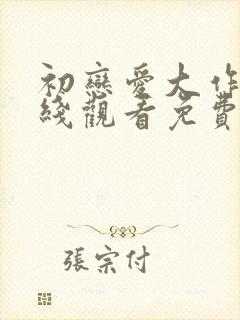 初戀愛大作
綫觀看免費
張宗付